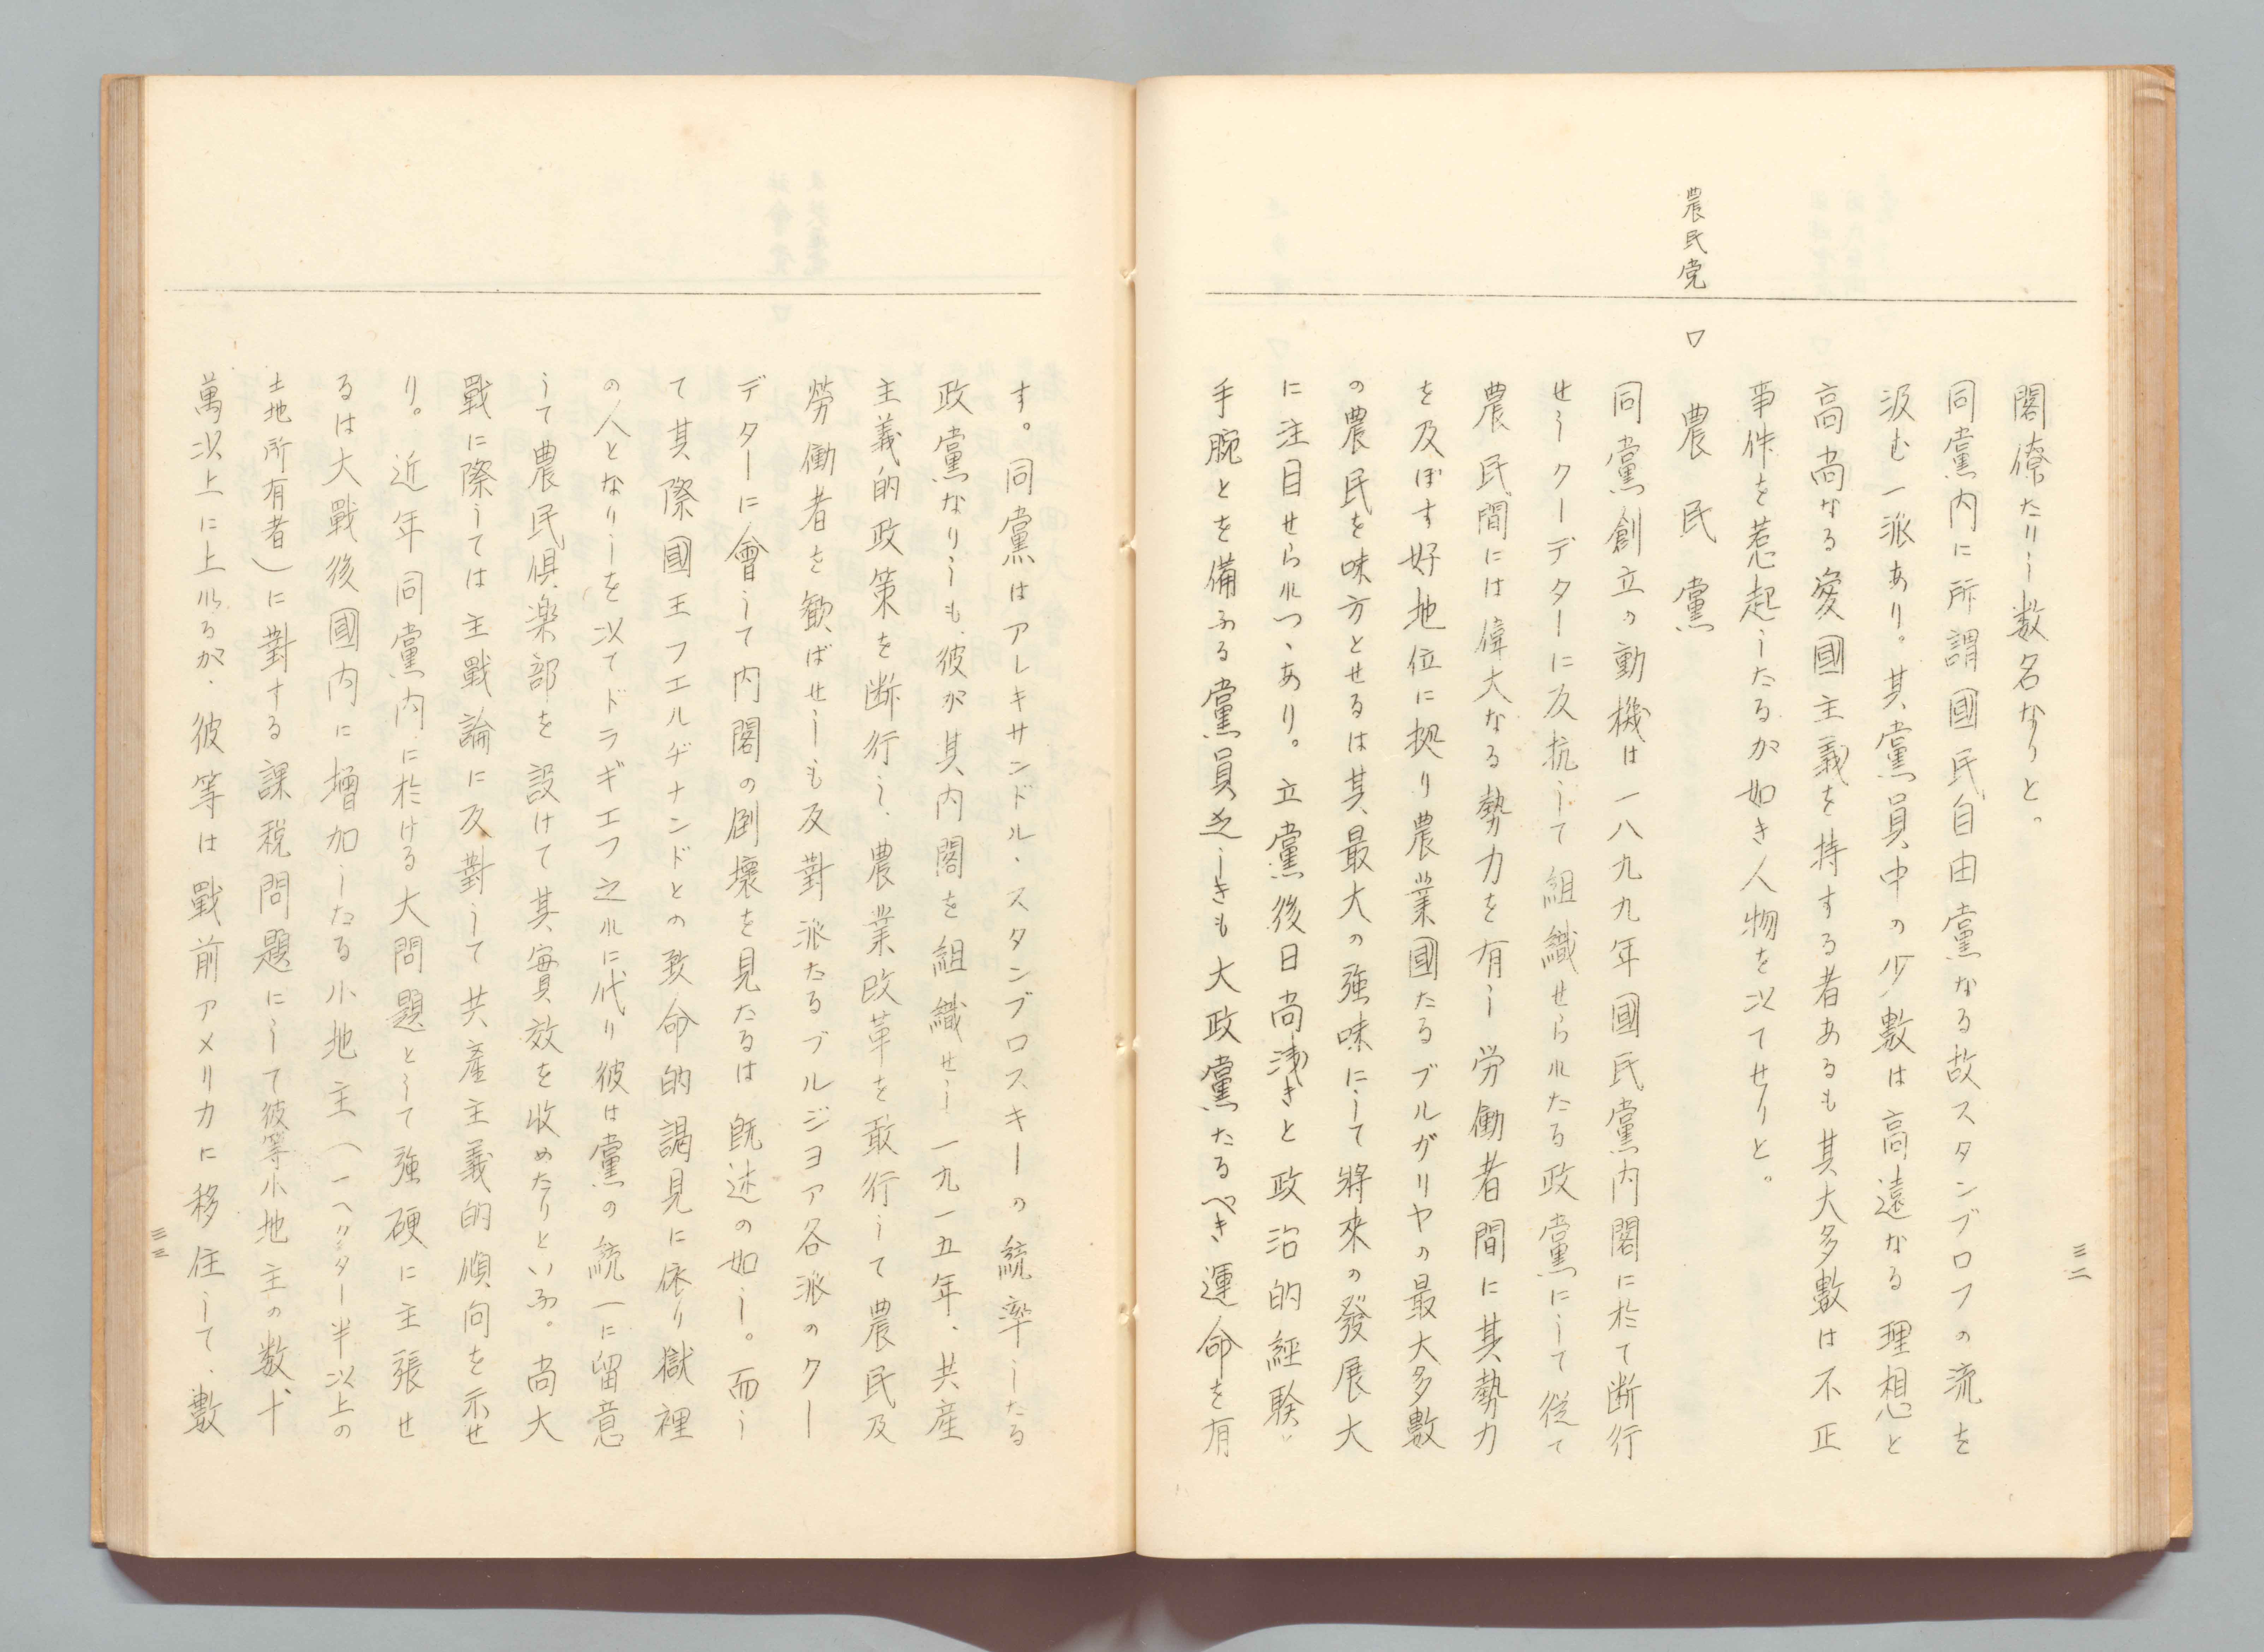 三二
閣僚たりし数名なりと。
同黨内に所謂國民自由黨なる故スタンブロフの流を
汲む一派あり。其黨員中の少數は高遠なる理想と
高尚なる愛國主義を持する者あるも其大多數は不正
事件を惹起したるが如き人物を以てせりと。
農民党
ロ 農民黨
同黨創立の動機は一八九九年國民黨内閣に於て断行
せしクーデターに反抗して組織せられたる政黨にして従て
農民間には偉大なる勢力を有し労働者間に其勢力
を及ぼす好地位に拠り農業國たるブルガリヤの最大多數
の農民を味方とせるは其最大の強味にして將來の發展大
に注目せられつゝあり。立黨後日尚浅きと政治的経験
手腕とを備ふる黨員乏しきも大政黨たるべき運命を有
す。同黨はアレキサンドル・スタンブロスキーの統率したる
政黨なりしも、彼が其内閣を組織せし一九一五年、共産
主義的政策を断行し、農業改革を敢行して農民及
勞働者を歓ばせしも反對派たるブルジヨア各派のクー
データーに會して内閣の倒壞を見たるは既述の如し。而し
て其際國王フエルヂナンドとの致命的謁見に依り獄裡
の人となりしを以てドラギエフ之れに代り彼は黨の統一に留意
して農民倶楽部を設けて其實效を收めたりといふ。尚大
戰に際しては主戰論に反對して共産主義的傾向を示せ
り。近年同黨内に於ける大問題として強硬に主張せ
るは大戰後國内に増加したる小地主(一ヘクター半以上の
土地所有者)に對する課税問題にして彼等小地主の数十
萬以上に上れるが、彼等は戰前アメリカに移住して、數
三三